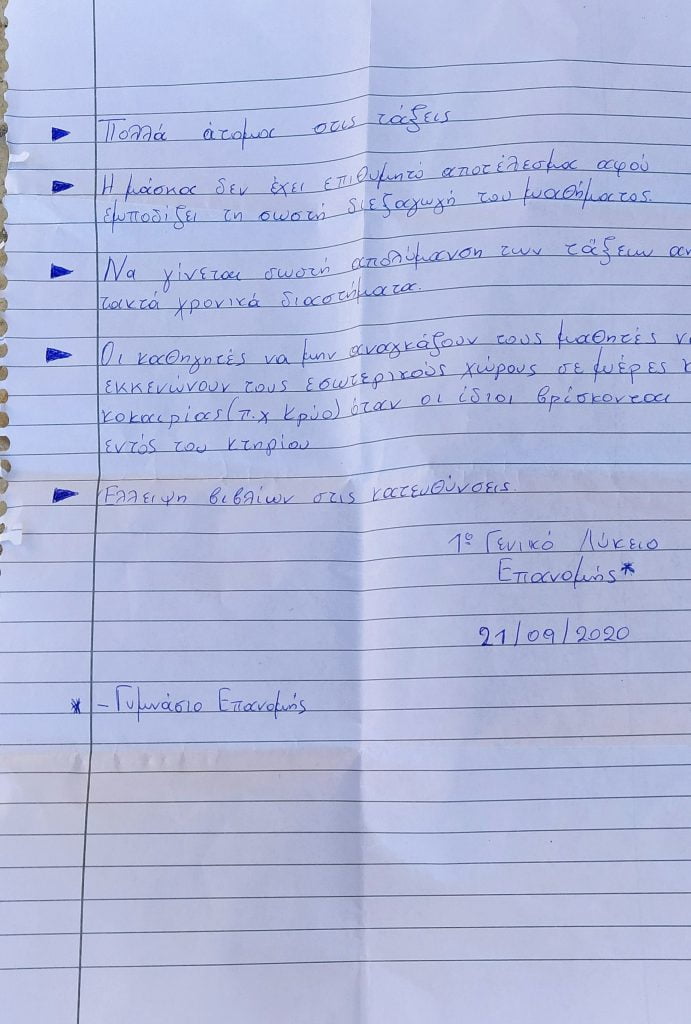 Πολλά άτομα στις τάξεις
Η μάσκα δεν έχει επιθυμητό αποτέλεσμα αφού
εμποδίζει τη σωστή διεξαγωγή του μαθήματος.
Να γίνεται σωστή απολύμανση των τάξεων αν
τακτά χρονικά διαστήματα.
Οι καθηγητές να μην αναγκάζουν τους μαθητές ν
εκκενώνουν τους εσωτερικούς χώρους σε μέρες κ
κοκαιρίας (π.χ κρύο) όταν οι ίδιοι βρίσκονται
εντός του κτηρίου
Έλλειψη βιβλίων στις κατευθύνσεις.
1ο Γενικό Λύκειο
Επανομής*
21/09/2020
* - Γυμνάσιο Επανομής